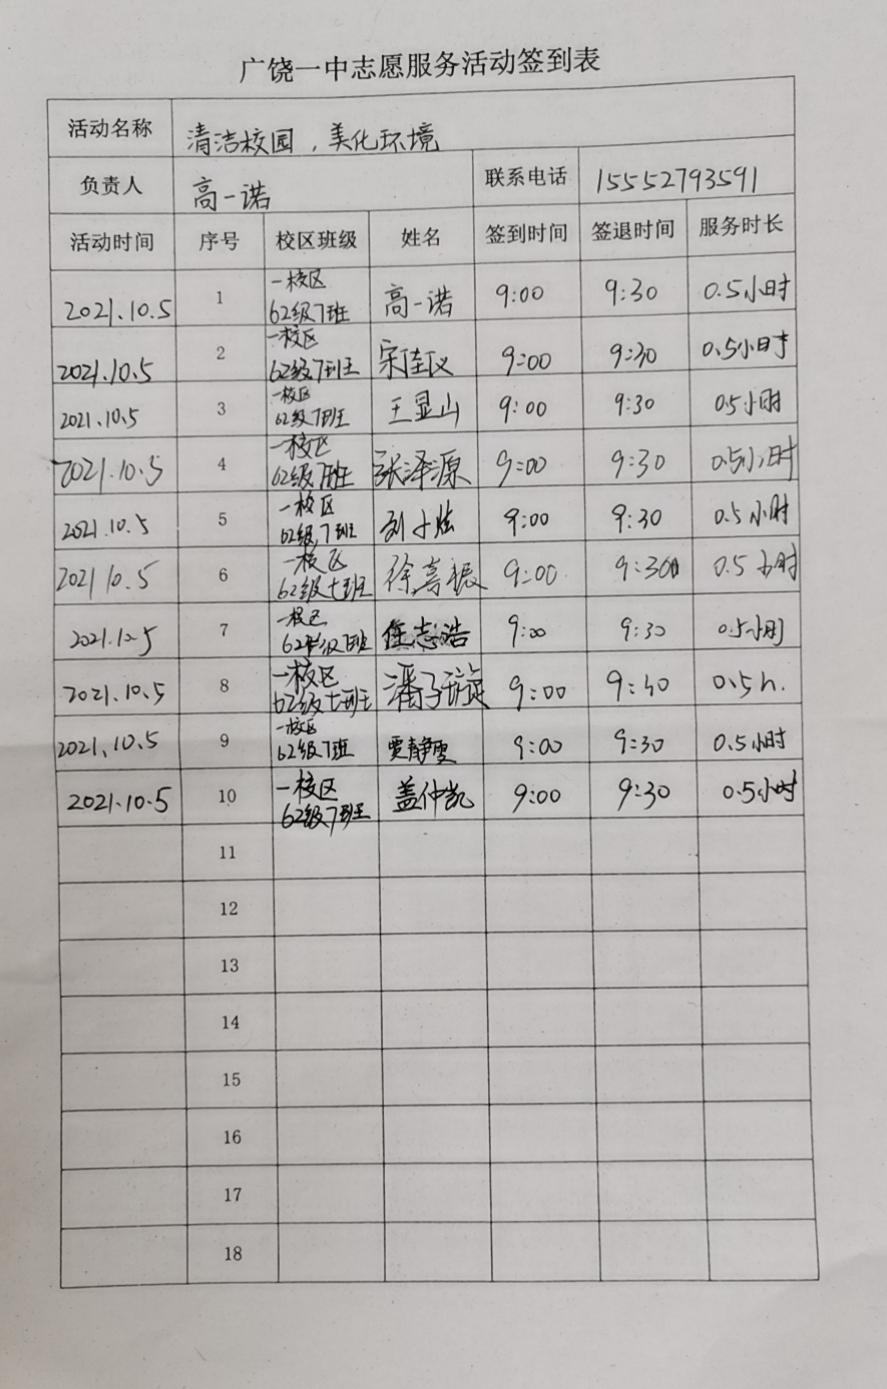 广饶一中志愿服务活动签到表
活动名称 清洁校园，美化环境
负责人 高一诺 联系电话 15552793591
活动时间 序号 校区班级 姓名 签到时间 签退时间 服务时长
2021.10.5 1 一校区 62级7班 高一诺 9:00 9:30 0.5小时
2021.10.5 2 一校区 62级7班 宋佳仪 9:00 9:30 0.5小时
2021.10.5 3 一校区 62级7班 王显山 9:00 9:30 0.5小时
2021.10.5 4 一校区 62级7班 张泽源 9:00 9:30 0.5小时
2021.10.5 5 一校区 62级7班 9:00 9:30 0.5小时
2021 10.5 6 一校区 62级七班 徐嘉振 9:00 9:30 0.5小时
7 一校区 62级7班 任志浩 9:00 9:30 0.5小时
2021.10.5 8 一校区 62级七班 潘子璇 9:00 0.5h.
2021.10.5 9 一校区 62级7班 贾静雯 9:00 9:30 0.5小时
2021.10.5 10 一校区 62级7班 盖仲凯 9:00 9:30 0.5小时
11
12
13
14
15
16
17
18